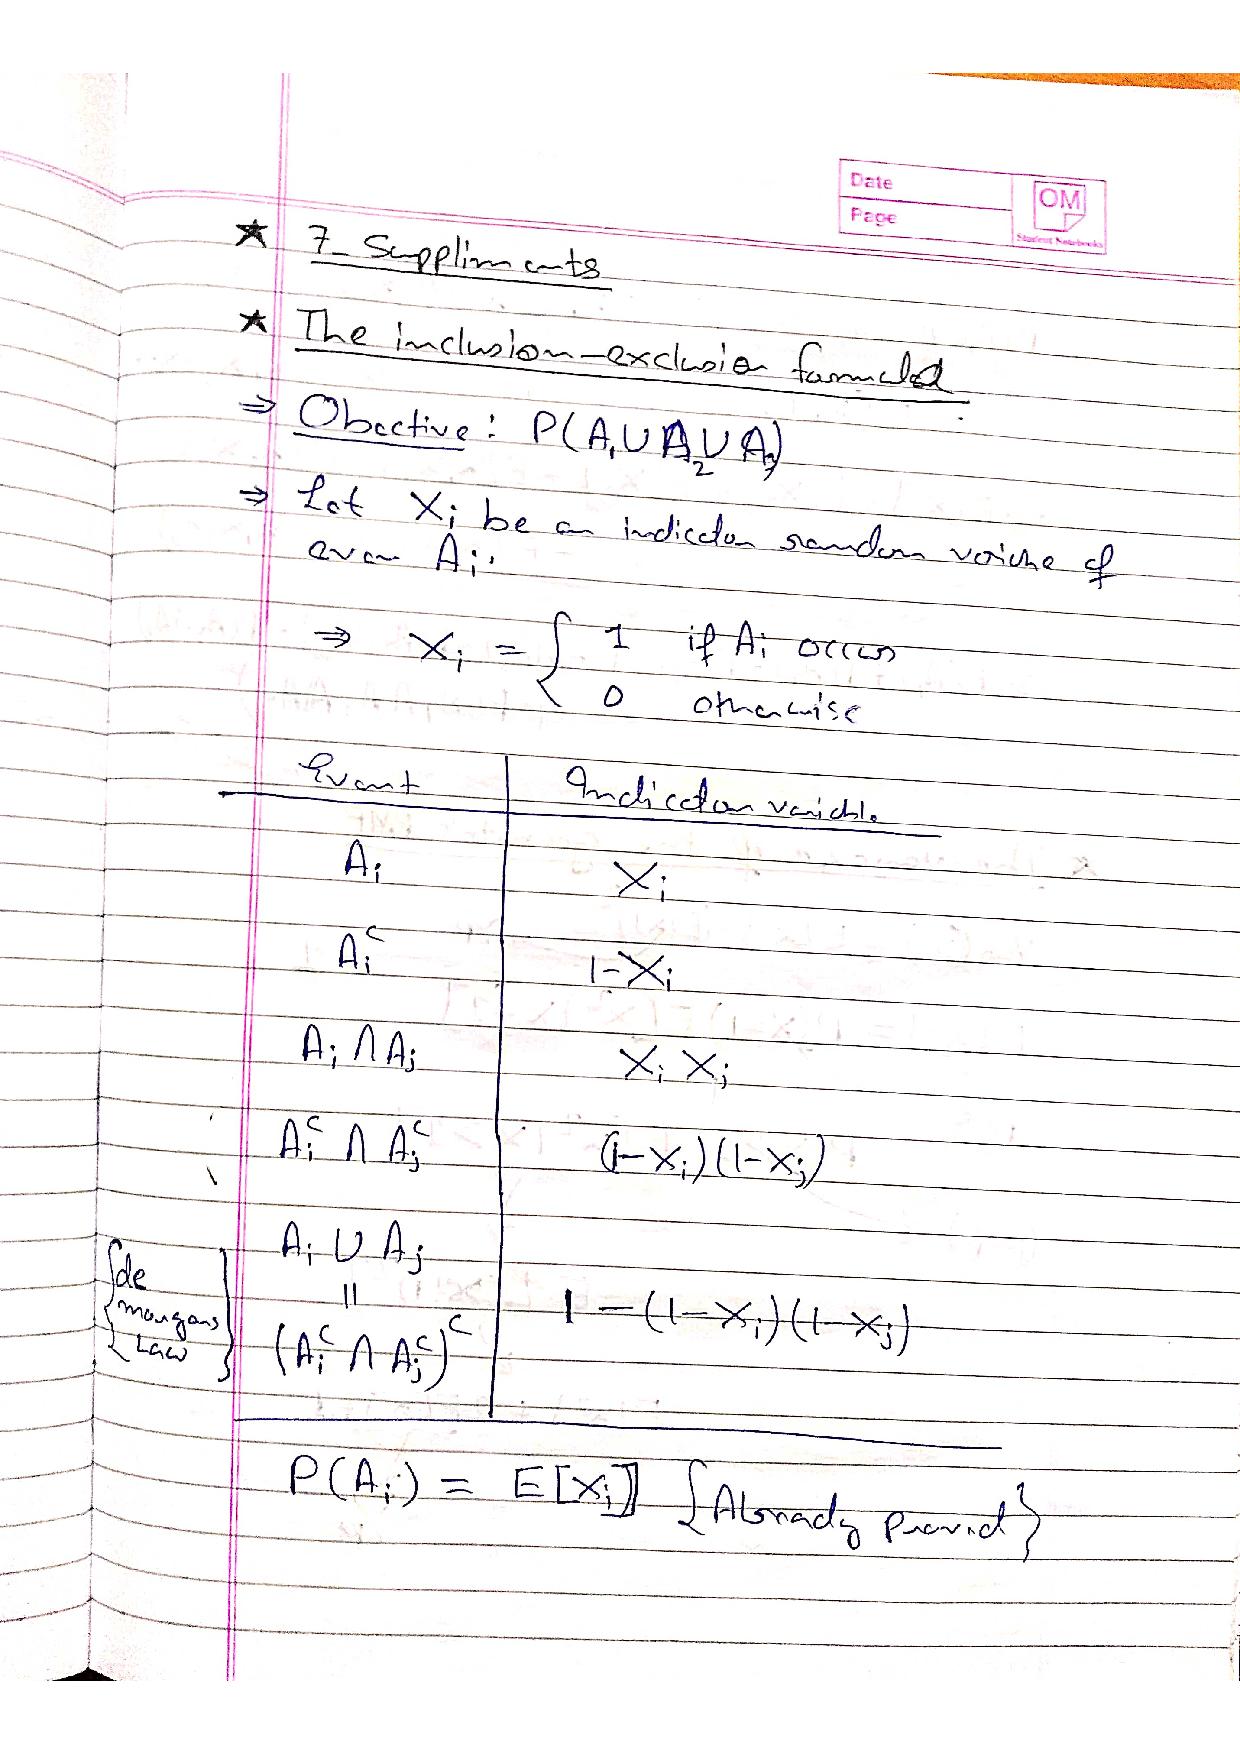 Date
OM
Page
Student Notebooks
★ 7- Suppliments
★ The inclusion-exclusion formula
⇒ Obective : P(A₁ ∪ A₂ ∪ A₃)
⇒ Let Xᵢ be an indicator random varible of
even Aᵢ.
⇒ Xᵢ = { 1 if Aᵢ occurs
0 otherwise
Event Indicator variable
Aᵢ Xᵢ
Aᵢᶜ 1-Xᵢ
Aᵢ ∩ Aⱼ Xᵢ Xⱼ
Aᵢᶜ ∩ Aⱼᶜ (1-Xᵢ)(1-Xⱼ)
Aᵢ ∪ Aⱼ
{de morgans Law} || 1-(1-Xᵢ)(1-Xⱼ)
(Aᵢᶜ ∩ Aⱼᶜ)ᶜ
P(Aᵢ) = E[Xᵢ] {Already Proved}